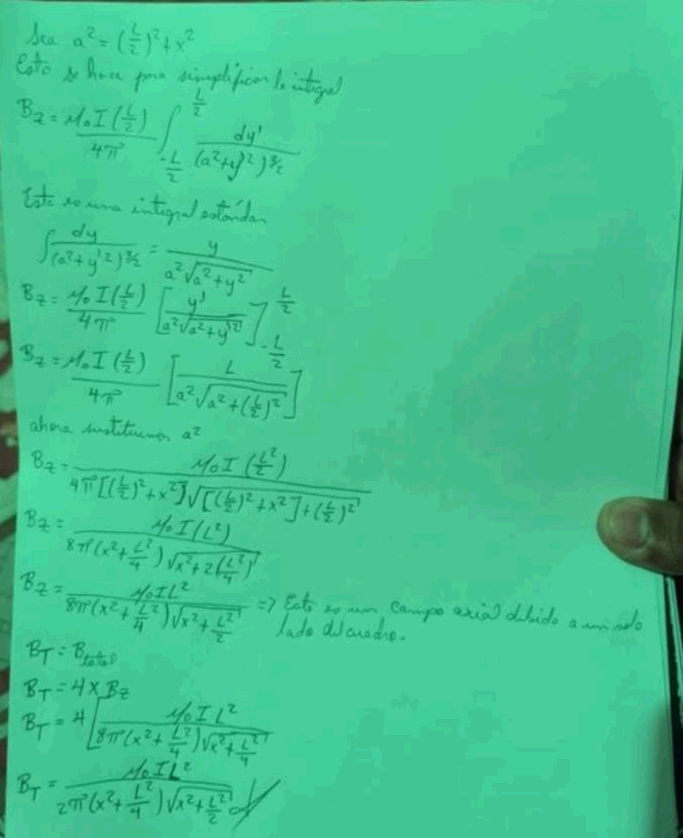 Sea a² = (L/2)² + x²
Esto se hace para simplificar la integral
B_z = μ₀I(L/2) / 4π ∫_{-L/2}^{L/2} dy' / (a²+y'²)^{3/2}
Esta es una integral estándar
∫ dy / (a²+y'²)^{3/2} = y / a²√(a²+y²)
B_z = μ₀I(L/2) / 4π [ y' / a²√(a²+y'²) ]_{-L/2}^{L/2}
B_z = μ₀I(L/2) / 4π [ L / a²√(a²+(L/2)²) ]
ahora sustituimos a²
B_z = μ₀I(L²/2) / 4π[(L/2)²+x²]√([(L/2)²+x²]+(L/2)²)
B_z = μ₀I(L²) / 8π(x²+L²/4)√(x²+2(L²/4))
B_z = μ₀IL² / 8π(x²+L²/4)√(x²+L²/2) => Este es un campo axial debido a un solo
lado del cuadro.
B_T = B_total
B_T = 4 x B_z
B_T = 4[ μ₀IL² / 8π(x²+L²/4)√(x²+L²/4)
B_T = μ₀IL² / 2π(x²+L²/4)√(x²+L²/2)